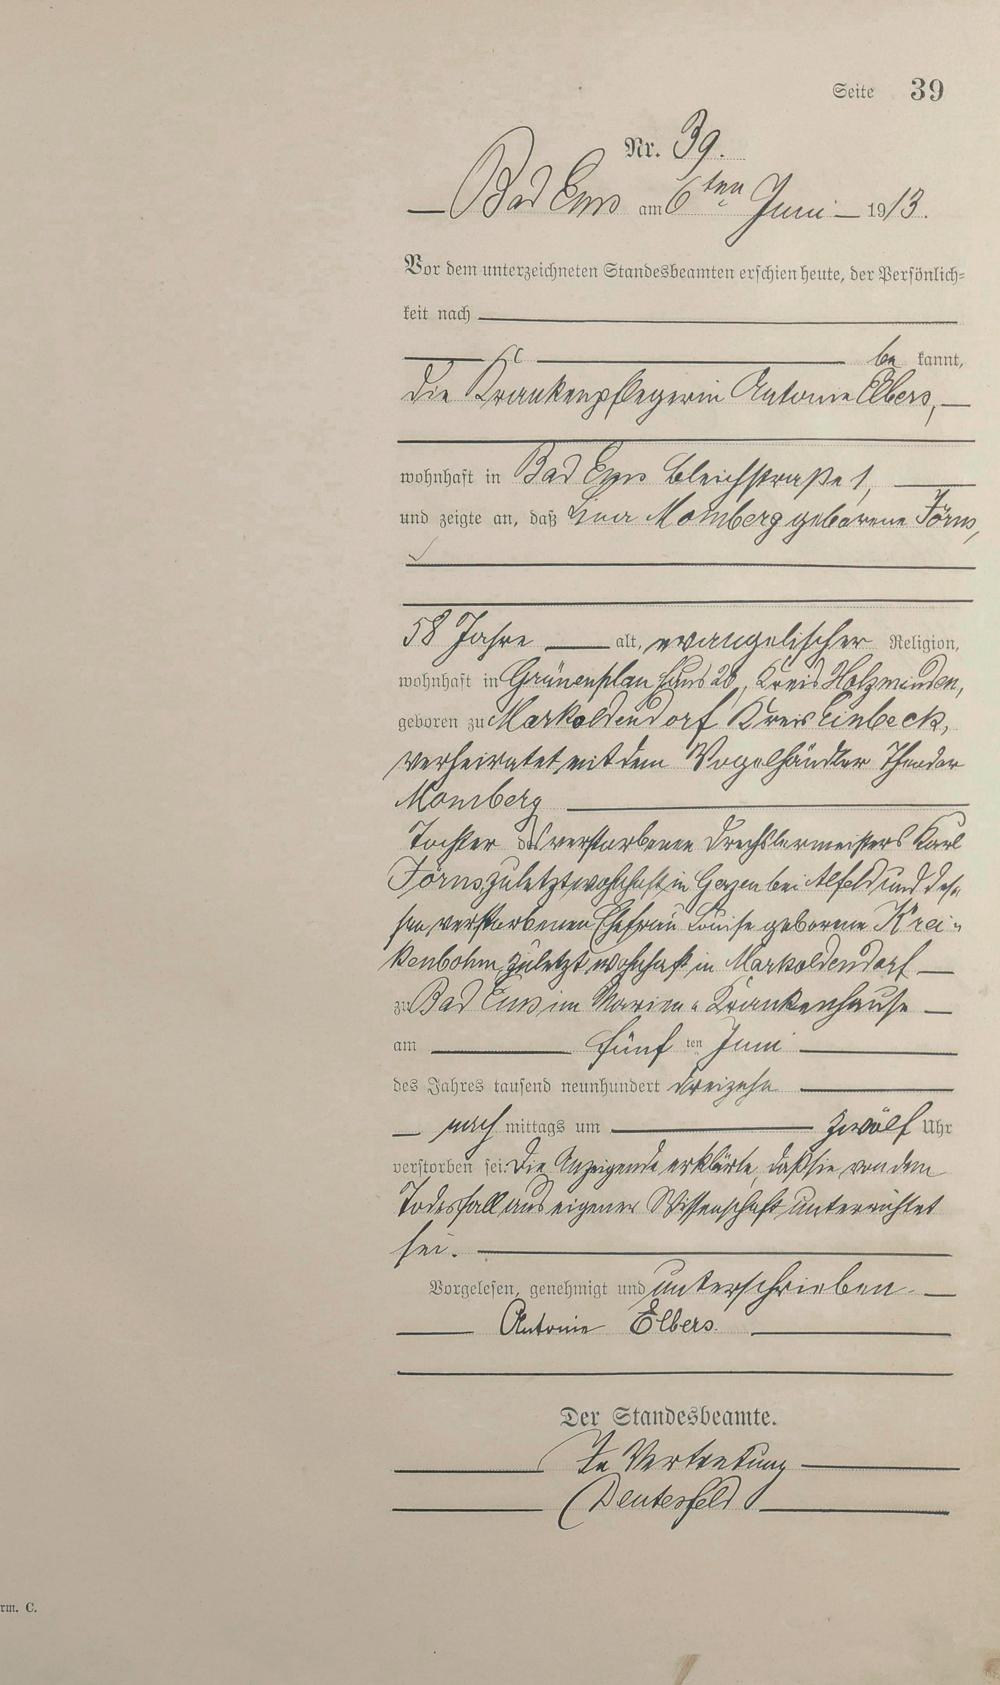 Seite 39
Nr. 39.
Bad Ems am 6ten Juni 1913.
Vor dem unterzeichneten Standesbeamten erschien heute, der Persönlich-
keit nach
be kannt,
die Krankenpflegerin Antonie Elbers,
wohnhaft in Bad Ems Bleichstraße 1,
und zeigte an, daß Lina Momberg geborene Jörns,
58 Jahre alt, evangelischer Religion,
wohnhaft in Grünenplan Haus 28, Kreis Holzminden,
geboren zu Markoldendorf Kreis Einbeck,
verheiratet mit dem Vogelhändler Theodor
Momberg
Tochter des verstorbenen Drechslermeisters Karl
Jörns, zuletzt wohnhaft in Gerzen bei Alfeld und des-
sen verstorbenen Ehefrau Louise geborene Krei-
kenbohm, zuletzt wohnhaft in Markoldendorf
zu Bad Ems im Marien-Krankenhause
am fünf ten Juni
des Jahres tausend neunhundert dreizehn
nach mittags um zwölf Uhr
verstorben sei. Die Anzeigende erklärte, daß sie von dem
Todesfall aus eigener Wissenschaft unterrichtet
sei.
Vorgelesen, genehmigt und unterschrieben
Antonie Elbers.
Der Standesbeamte.
In Vertretung
rm. C.